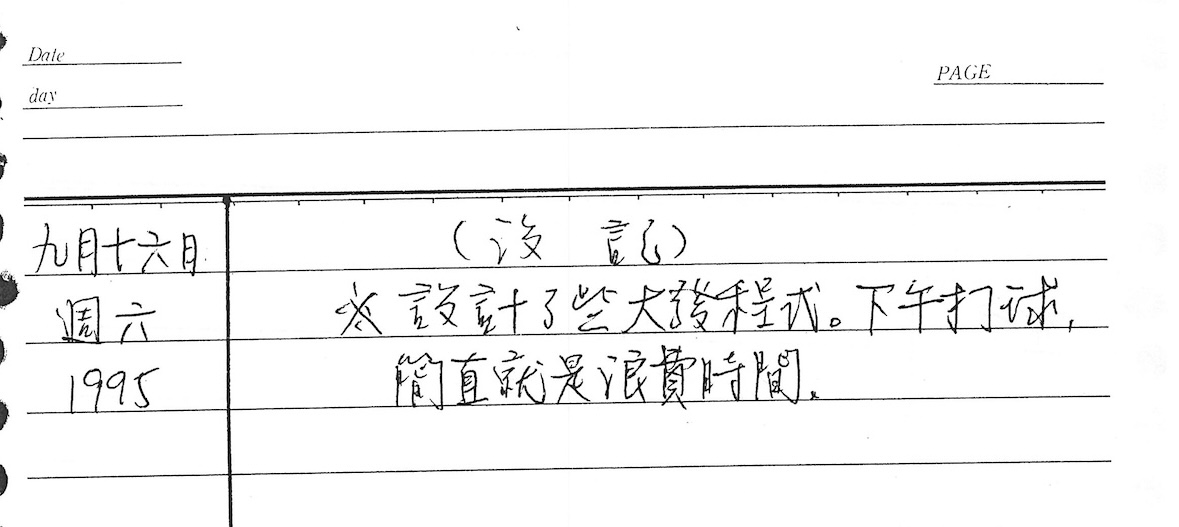 Date
PAGE
day
九月十六日
(後記)
週六
※ 設計了些大發程式。下午打球,
1995
簡直就是浪費時間.